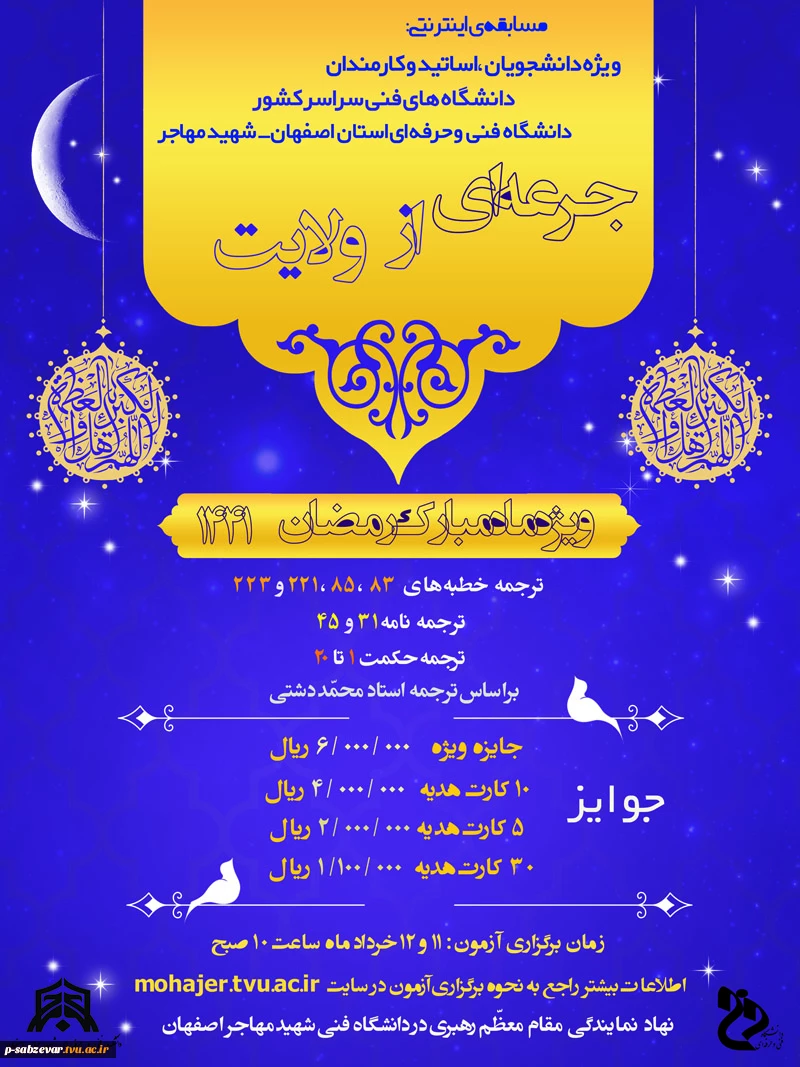 مسابقه‌ی اینترنتی:
ویژه دانشجویان، اساتید و کارمندان
دانشگاه های فنی سراسر کشور
دانشگاه فنی و حرفه ای استان اصفهان_ شهید مهاجر
جرعه‌ای از ولایت
اللهم اهل الکبریاء و العظمة
اللهم اهل الکبریاء و العظمة
ویژه ماه مبارک رمضان ۱۴۴۱
ترجمه خطبه های ۸۳ ، ۸۵ ، ۲۲۱ و ۲۲۳
ترجمه نامه ۳۱ و ۴۵
ترجمه حکمت ۱ تا ۲۰
براساس ترجمه استاد محمّد دشتی
جوایز
جایزه ویژه ۶/۰۰۰/۰۰۰ ریال
۱۰ کارت هدیه ۴/۰۰۰/۰۰۰ ریال
۵ کارت هدیه ۲/۰۰۰/۰۰۰ ریال
۳۰ کارت هدیه ۱/۱۰۰/۰۰۰ ریال
زمان برگزاری آزمون : ۱۱ و ۱۲ خرداد ماه ساعت ۱۰ صبح
اطلاعات بیشتر راجع به نحوه برگزاری آزمون در سایت mohajer.tvu.ac.ir
نهاد نمایندگی مقام معظّم رهبری در دانشگاه فنی شهید مهاجر اصفهان
p-sabzevar.tvu.ac.ir